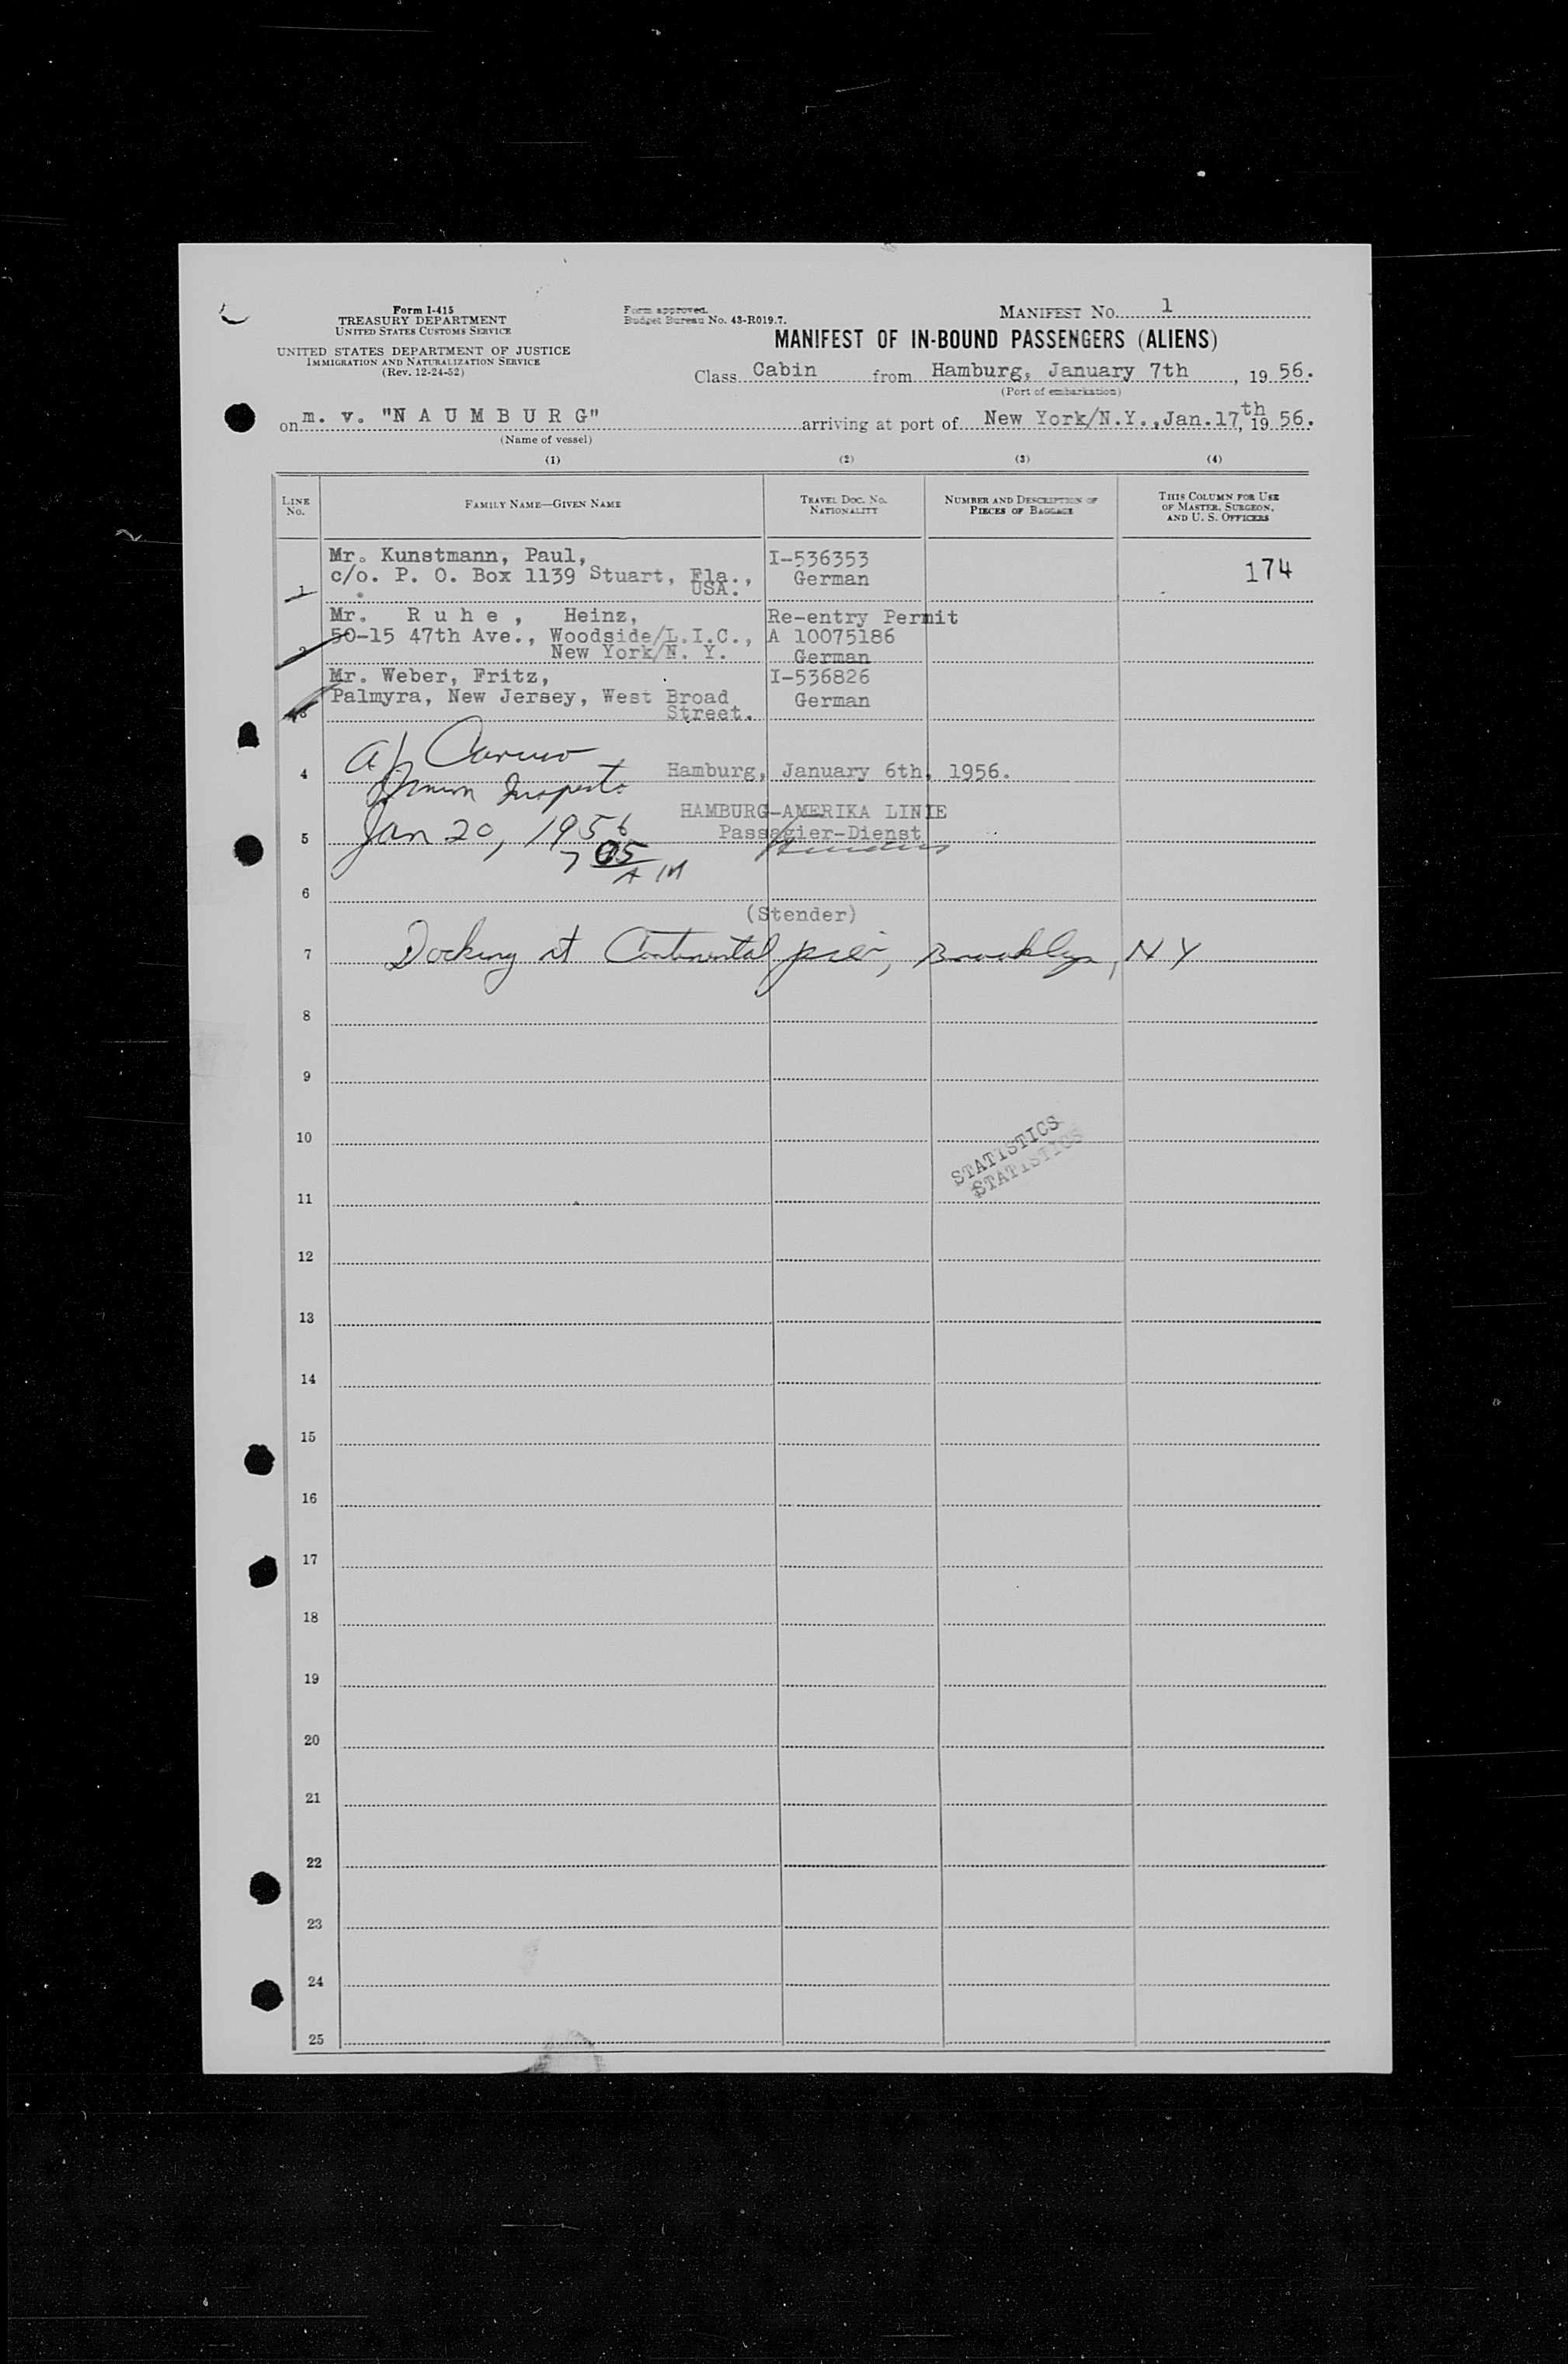 Form I-415
TREASURY DEPARTMENT
UNITED STATES CUSTOMS SERVICE
UNITED STATES DEPARTMENT OF JUSTICE
IMMIGRATION AND NATURALIZATION SERVICE
(Rev. 12-24-52)
Form approved.
Budget Bureau No. 43-R019.7.
MANIFEST NO. 1
MANIFEST OF IN-BOUND PASSENGERS (ALIENS)
Class Cabin from Hamburg, January 7th, 19 56.
(Port of embarkation)
on m. v. "N A U M B U R G" arriving at port of New York/N.Y., Jan.17th, 19 56.
(Name of vessel)
(1) (2) (3) (4)
LINE NO. FAMILY NAME—GIVEN NAME TRAVEL DOC. NO. NATIONALITY NUMBER AND DESCRIPTION OF PIECES OF BAGGAGE THIS COLUMN FOR USE OF MASTER, SURGEON, AND U. S. OFFICERS
1 Mr. Kunstmann, Paul, I-536353 174
c/o. P. O. Box 1139 Stuart, Fla., German
USA.
2 Mr. R u h e , Heinz, Re-entry Permit
50-15 47th Ave., Woodside/L.I.C., A 10075186
New York/N. Y. German
3 Mr. Weber, Fritz, I-536826
Palmyra, New Jersey, West Broad German
Street.
Caruso
4 Hamburg, January 6th, 1956.
Inspector
HAMBURG-AMERIKA LINIE
5 Jan 20, 1956 Passagier-Dienst
7 05 AM
6
(Stender)
7 Docking at Continental pier, Brooklyn, NY
8
9
10
STATISTICS
STATISTICS
11
12
13
14
15
16
17
18
19
20
21
22
23
24
25